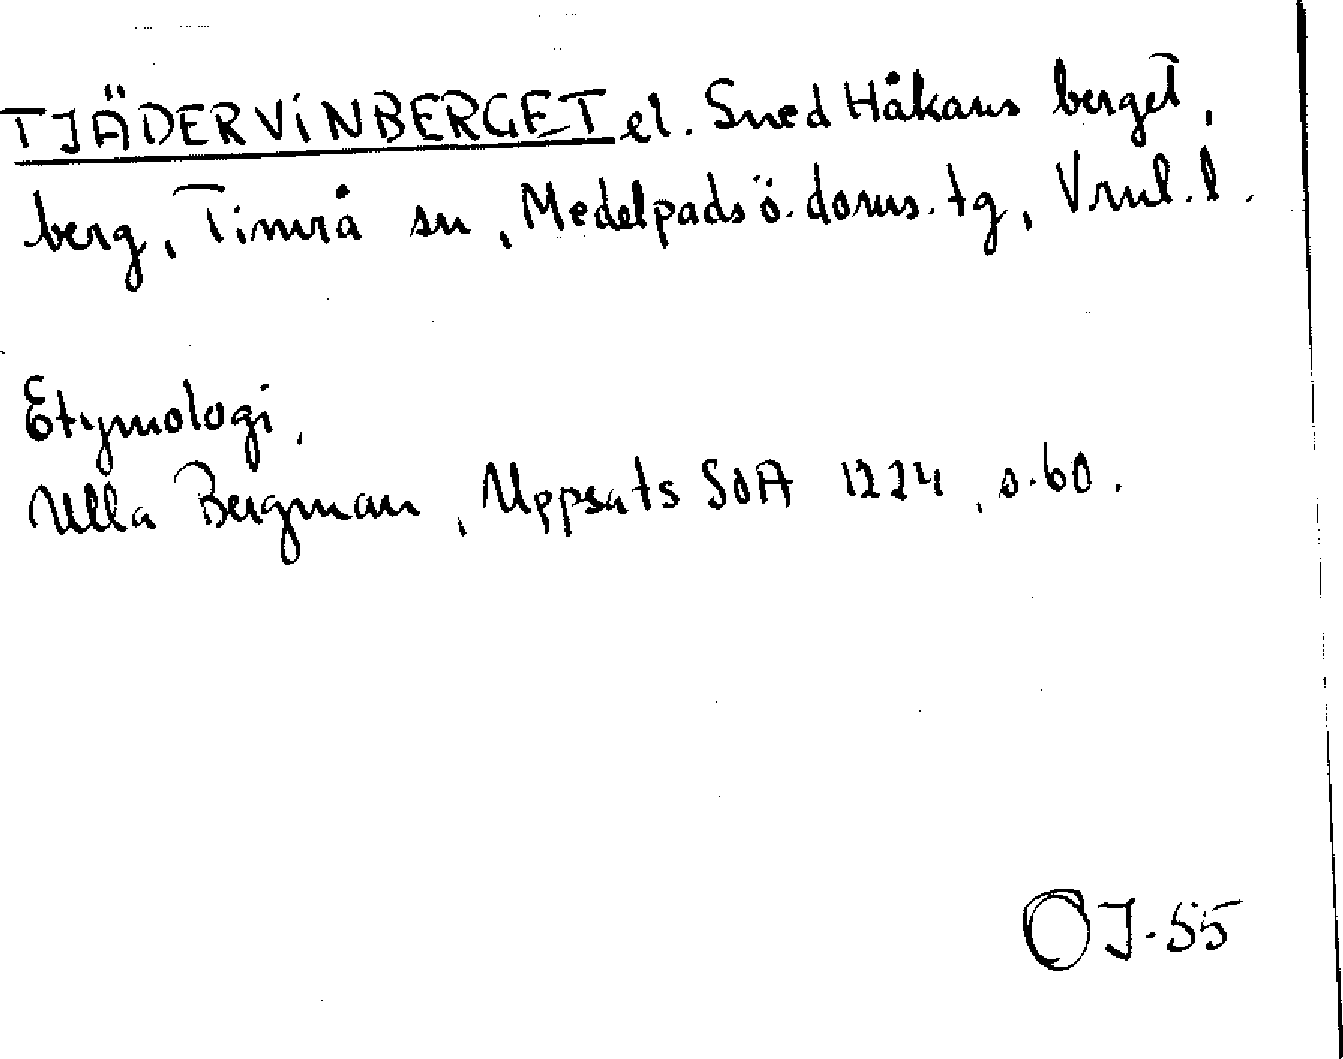 TJÄDERVINBERGET el. Sned Håkans berget,
berg, Timrå sn, Medelpads ö. doms. tg, Vnl. l.
Etymologi.
Ulla Bergman, Uppsats SOA 1224, s. 60.
OJ-55